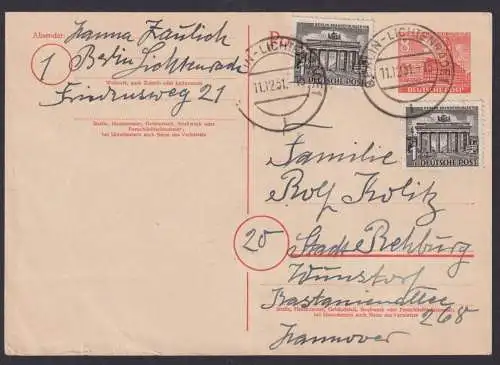 Absender: Hanna Zaulich
1 Berlin Lichtenrade
Wohnort, auch Zustell- oder Leitpostamt
Friedensweg 21
Straße, Hausnummer, Gebäudeteil, Stockwerk oder
Postschließfachnummer;
bei Untermietern auch Name des Vermieters
P
BERLIN-LICHTENRADE 1
11.12.51.
DEUTSCHE POST
BERLIN-LICHTENRADE 1
11.12.51.
8
DEUTSCHE POST
1
DEUTSCHE POST
Familie
Rolf Kolitz
20 Stadt Rehburg
Wunstorf
Kastanienallee
Straße, Hausnummer, Gebäudeteil, Stockwerk oder Postschließfachnummer;
bei Untermietern auch Name des Vermieters
268
Hannover